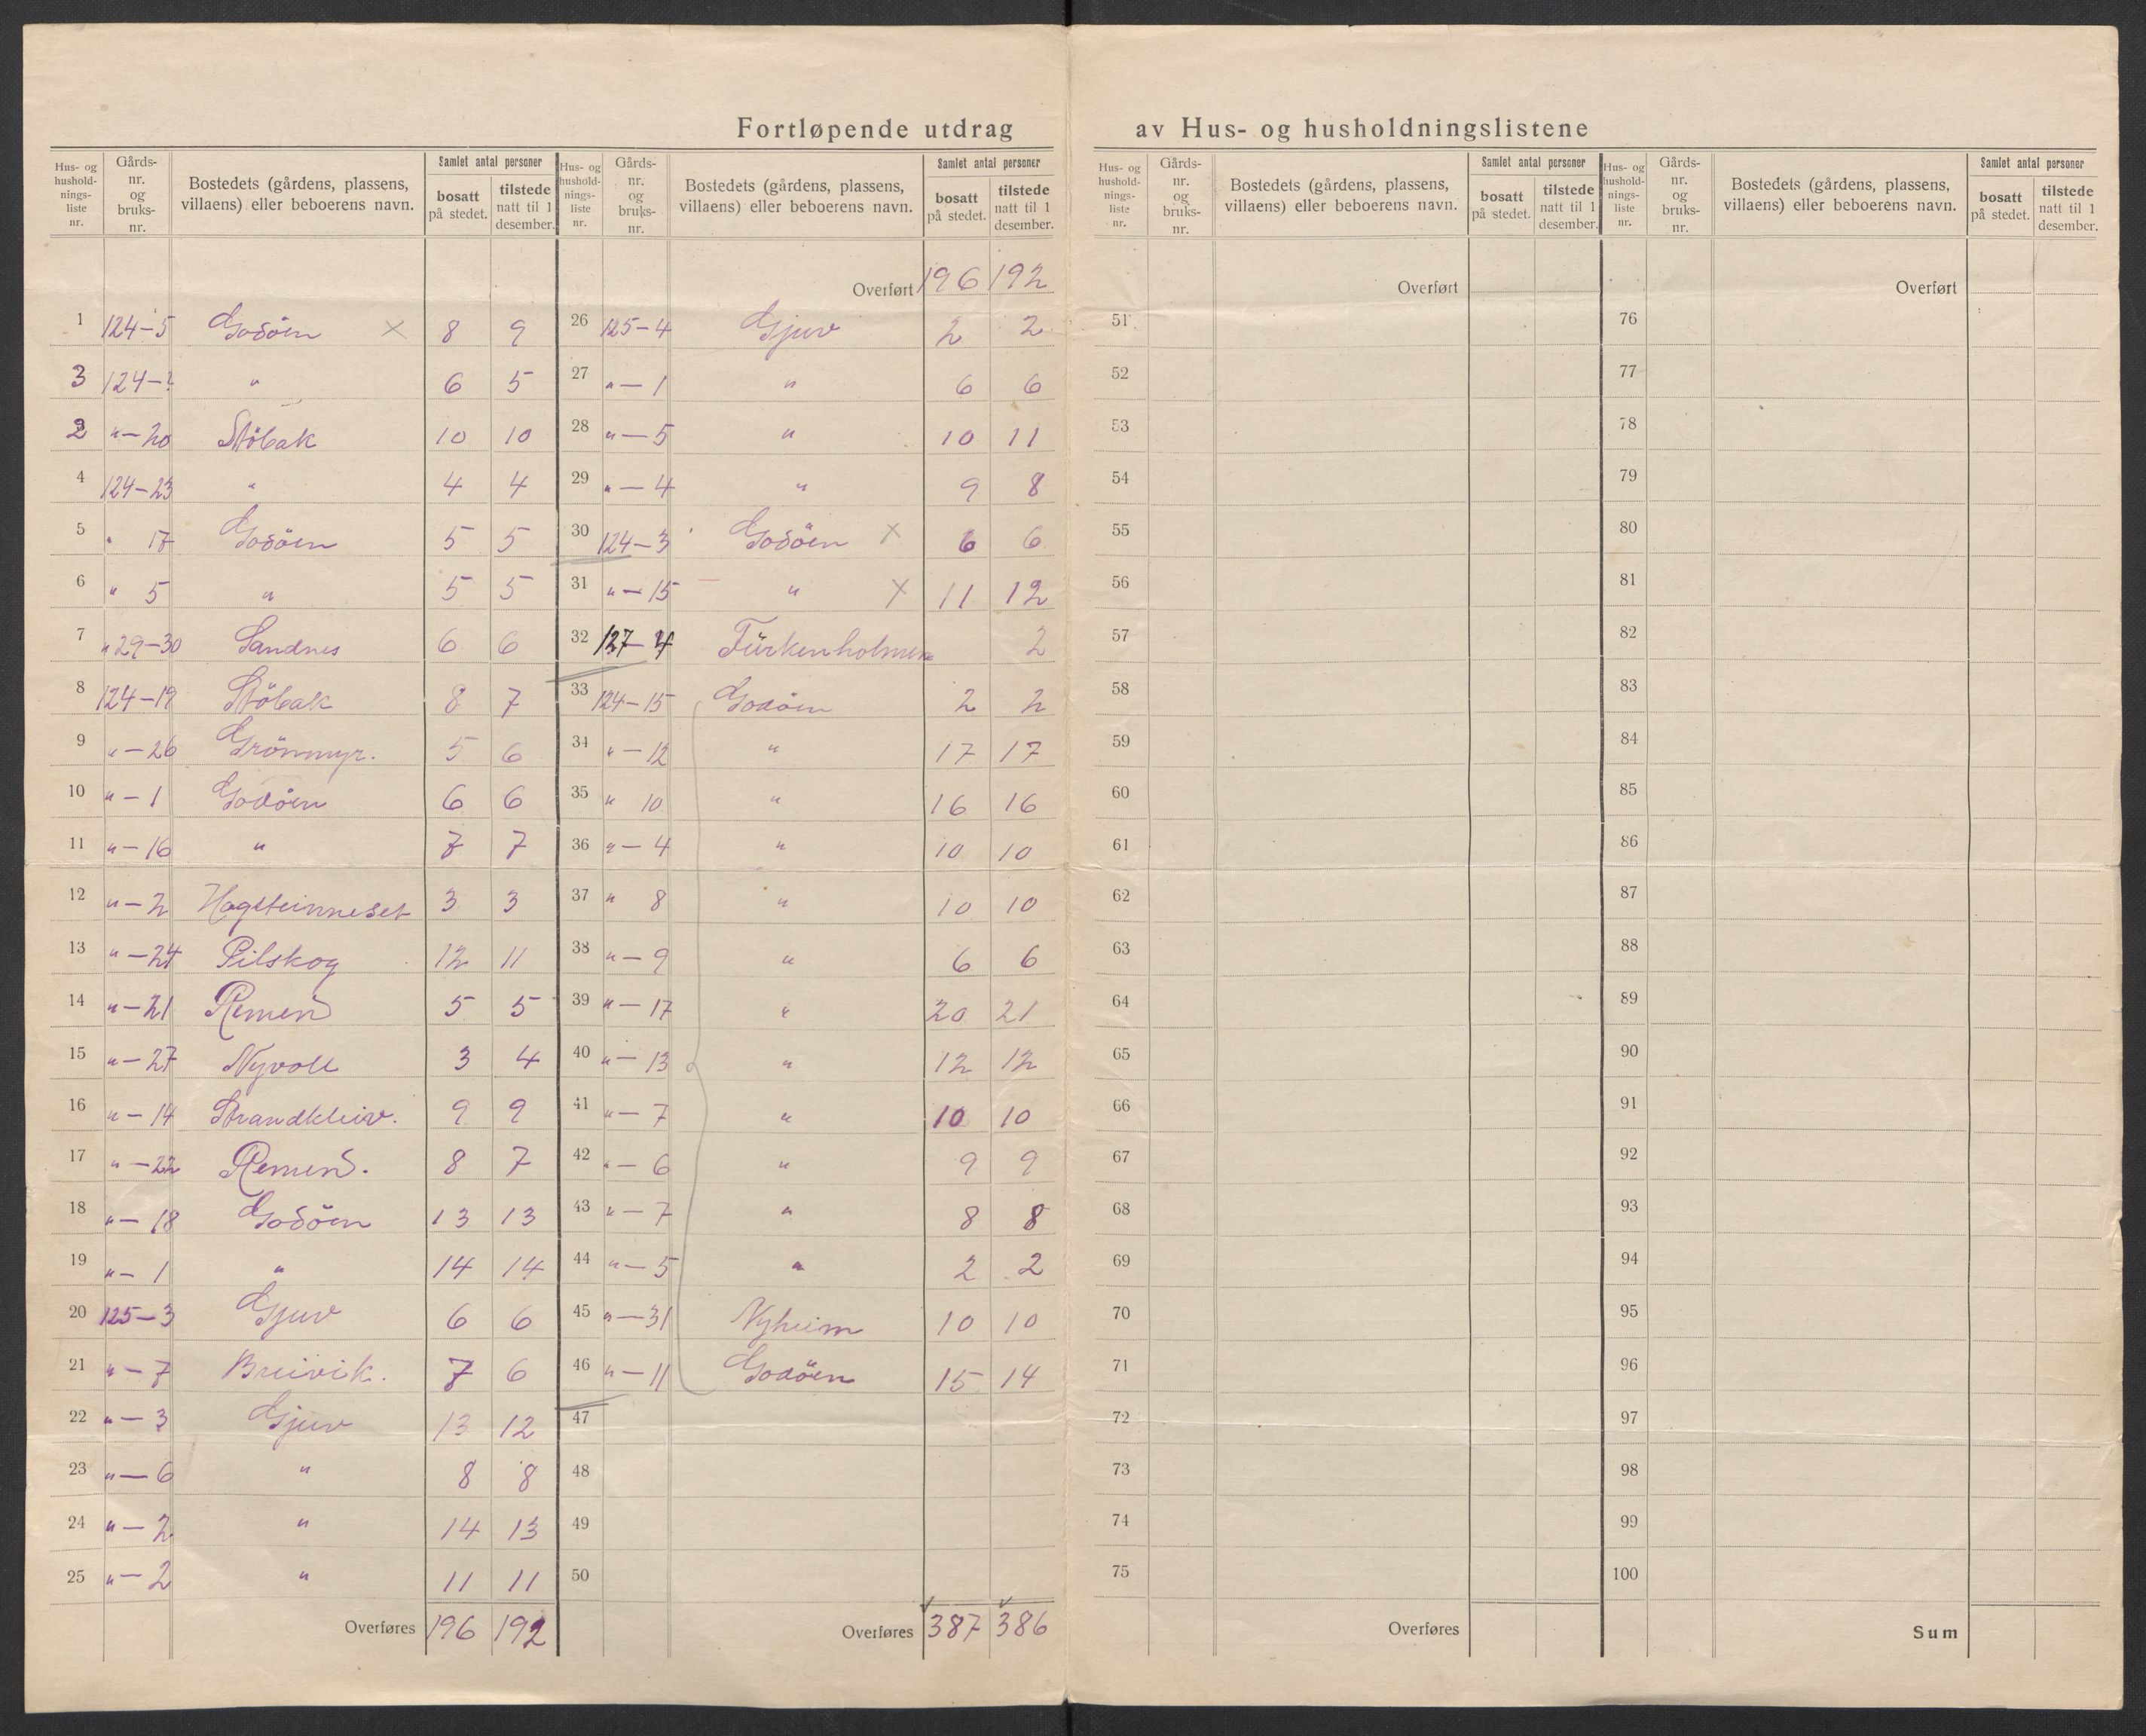 Fortløpende utdrag av Hus- og husholdningslistene
Hus- og hushold-nings-liste nr. | Gårds-nr. og bruks-nr. | Bostedets (gårdens, plassens, villaens) eller beboerens navn. | Samlet antal personer | bosatt på stedet. | tilstede natt til 1 desember.
1 124–5 Godöen × 8 9
3 124–? " 6 5
2 "–20 Stöbak 10 10
4 124–23 " 4 4
5 " 17 Godöen 5 5
6 " 5 " 5 5
7 "29–30 Sandnes 6 6
8 124–19 Stöbak 8 7
9 "–26 Grönmyr. 5 6
10 "–1 Godöen 6 6
11 "–16 " 7 7
12 "–2 Hogsteinneset 3 3
13 "–24 Pilskog 12 11
14 "–21 Remen 5 5
15 "–27 Nyvoll 3 4
16 "–14 Strandkleiv. 9 9
17 "–22 Remen. 8 7
18 "–18 Godöen 13 13
19 "–1 " 14 14
20 125–3 Gjuv 6 6
21 "–7 Breivik. 7 6
22 "–3 Gjuv 13 12
23 "–6 " 8 8
24 "–2 " 14 13
25 "–2 " 11 11
Overføres 196 192
Hus- og hushold-nings-liste nr. | Gårds-nr. og bruks-nr. | Bostedets (gårdens, plassens, villaens) eller beboerens navn. | Samlet antal personer | bosatt på stedet. | tilstede natt til 1 desember.
Overført 196 192
26 125–4 Gjuv 2 2
27 "–1 " 6 6
28 "–5 " 10 11
29 "–4 " 9 8
30 124–3 Godöen × 6 6
31 "–15 " × 11 12
32 127–4 Fürkenholmen 2
33 124–15 Godöen 2 2
34 "–12 " 17 17
35 " 10 " 16 16
36 "–4 " 10 10
37 " 8 " 10 10
38 "–9 " 6 6
39 "–17 " 20 21
40 "–13 " 12 12
41 "–7 " 10 10
42 "–6 " 9 9
43 "–7 " 8 8
44 "–5 " 2 2
45 "–31 Nyheim 10 10
46 "–11 Godöen 15 14
47
48
49
50
Overføres 387 386
Hus- og hushold-nings-liste nr. | Gårds-nr. og bruks-nr. | Bostedets (gårdens, plassens, villaens) eller beboerens navn. | Samlet antal personer | bosatt på stedet. | tilstede natt til 1 desember.
Overført
51
52
53
54
55
56
57
58
59
60
61
62
63
64
65
66
67
68
69
70
71
72
73
74
75
Overføres
Hus- og hushold-nings-liste nr. | Gårds-nr. og bruks-nr. | Bostedets (gårdens, plassens, villaens) eller beboerens navn. | Samlet antal personer | bosatt på stedet. | tilstede natt til 1 desember.
Overført
76
77
78
79
80
81
82
83
84
85
86
87
88
89
90
91
92
93
94
95
96
97
98
99
100
Sum